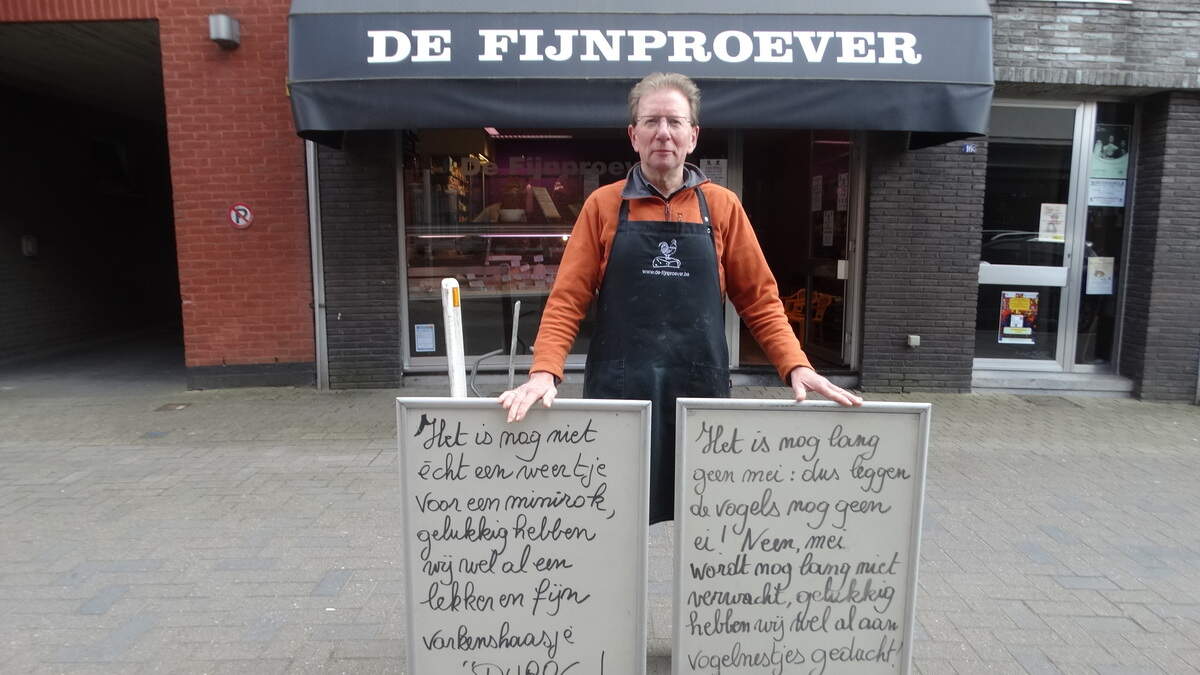 DE FIJNPROEVER
De Fijnproever
www.de-fijnproever.be
Het is nog niet
écht een weertje
voor een minirok,
gelukkig hebben
wij wel al een
lekker en fijn
varkenshaasje
Het is nog lang
geen mei : dus leggen
de vogels nog geen
ei! Neen, mei
wordt nog lang niet
verwacht, gelukkig
hebben wij wel al aan
vogelnestjes gedacht!